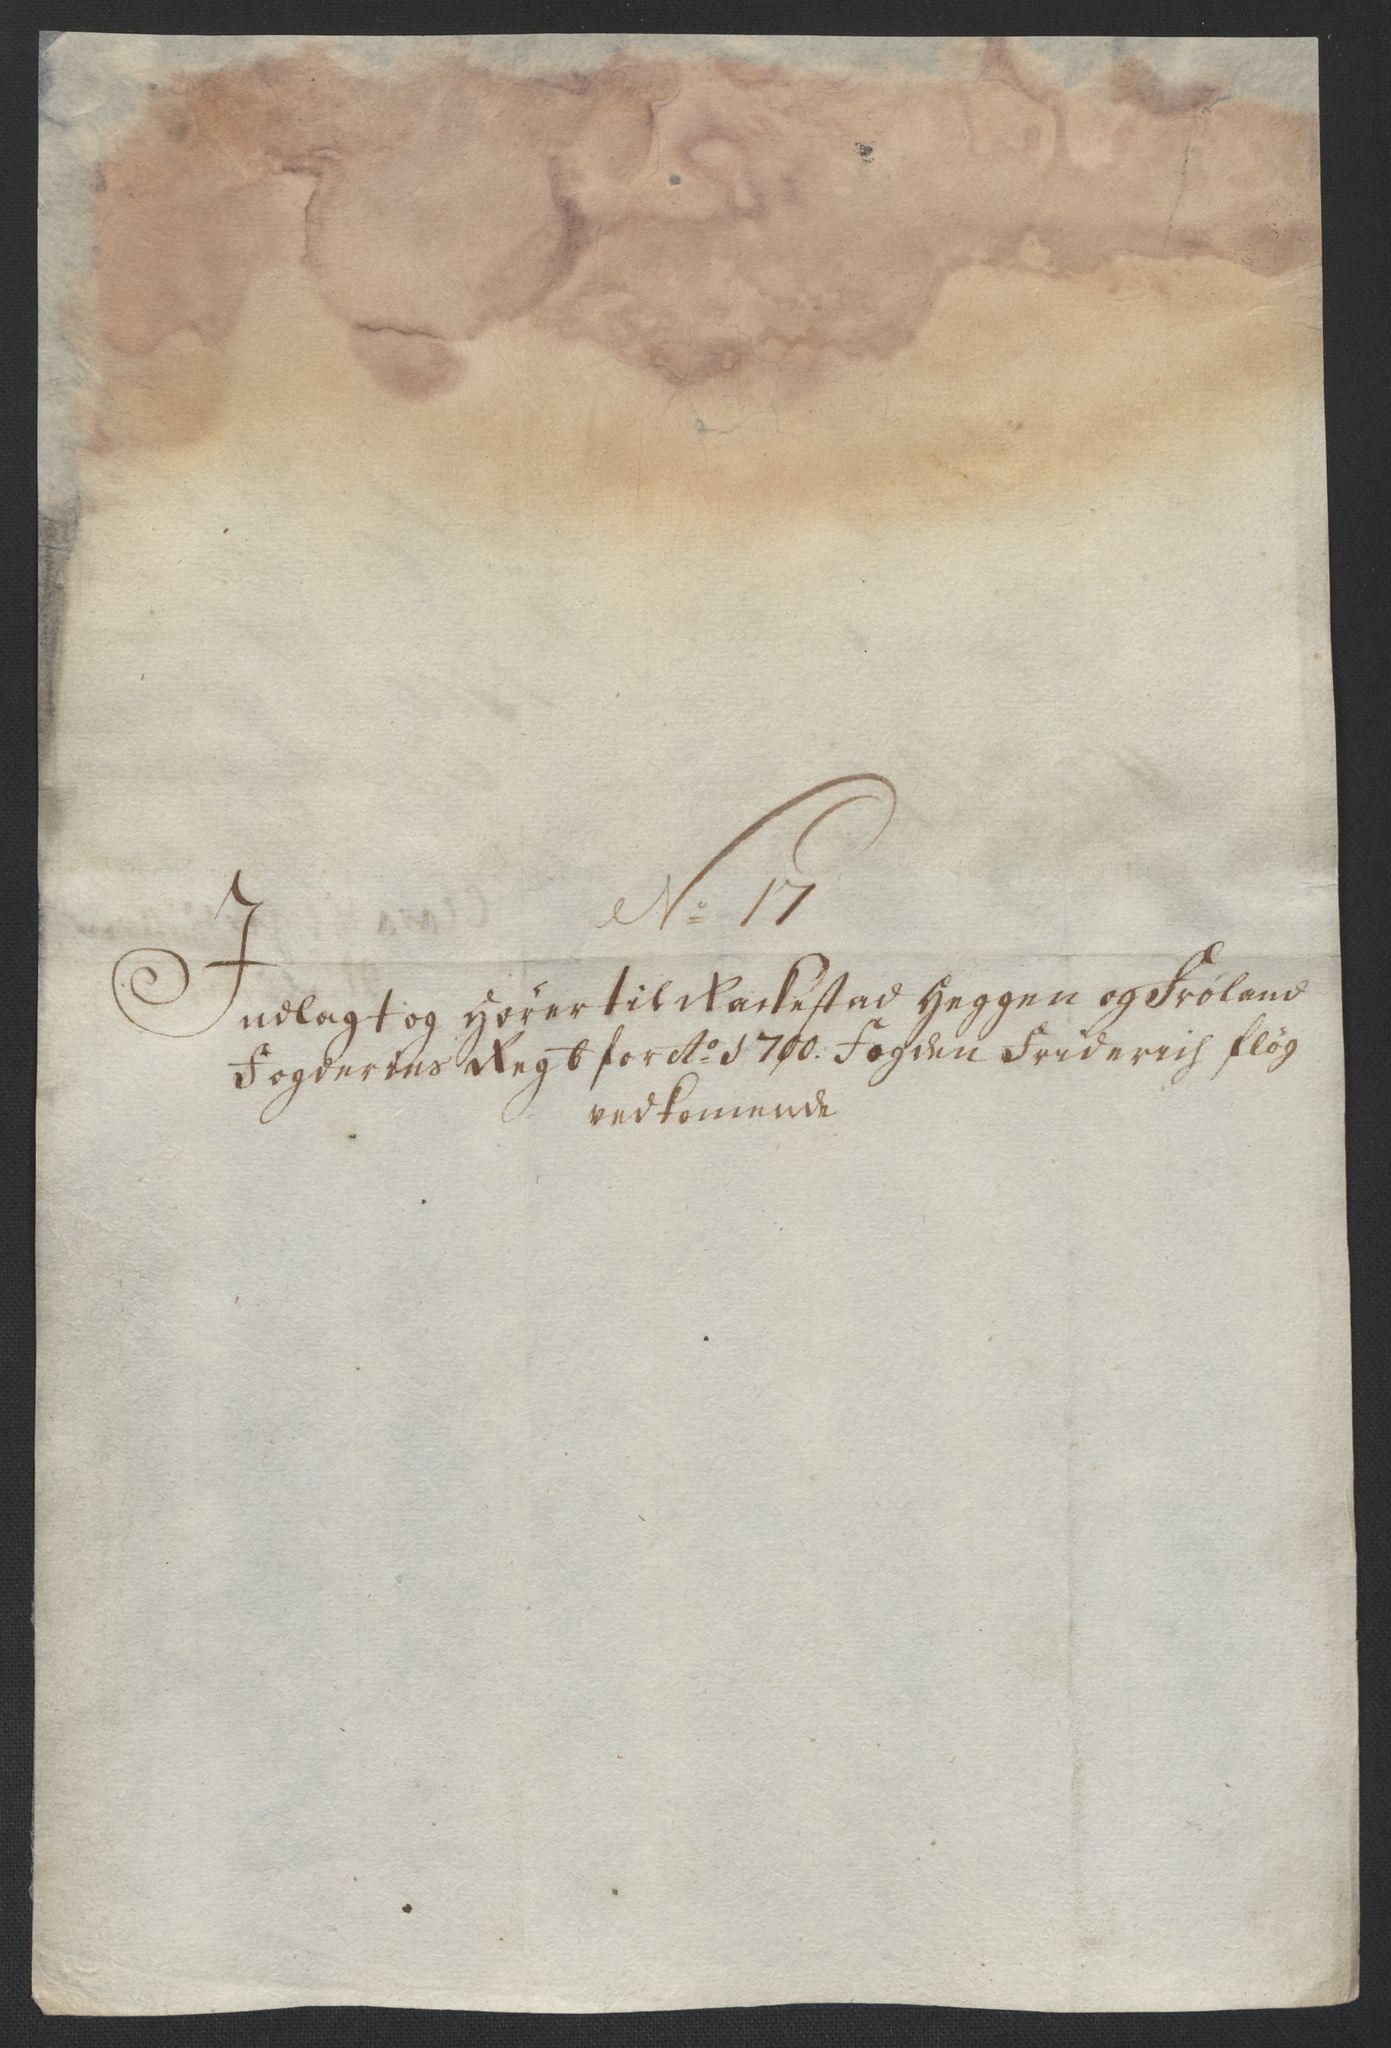 No 17
Indlagt og Hører til Rackestad Heggen og Frøland
Fogderies Regsb for Ao 1700. Fogden Friderich fløg
vedkomende